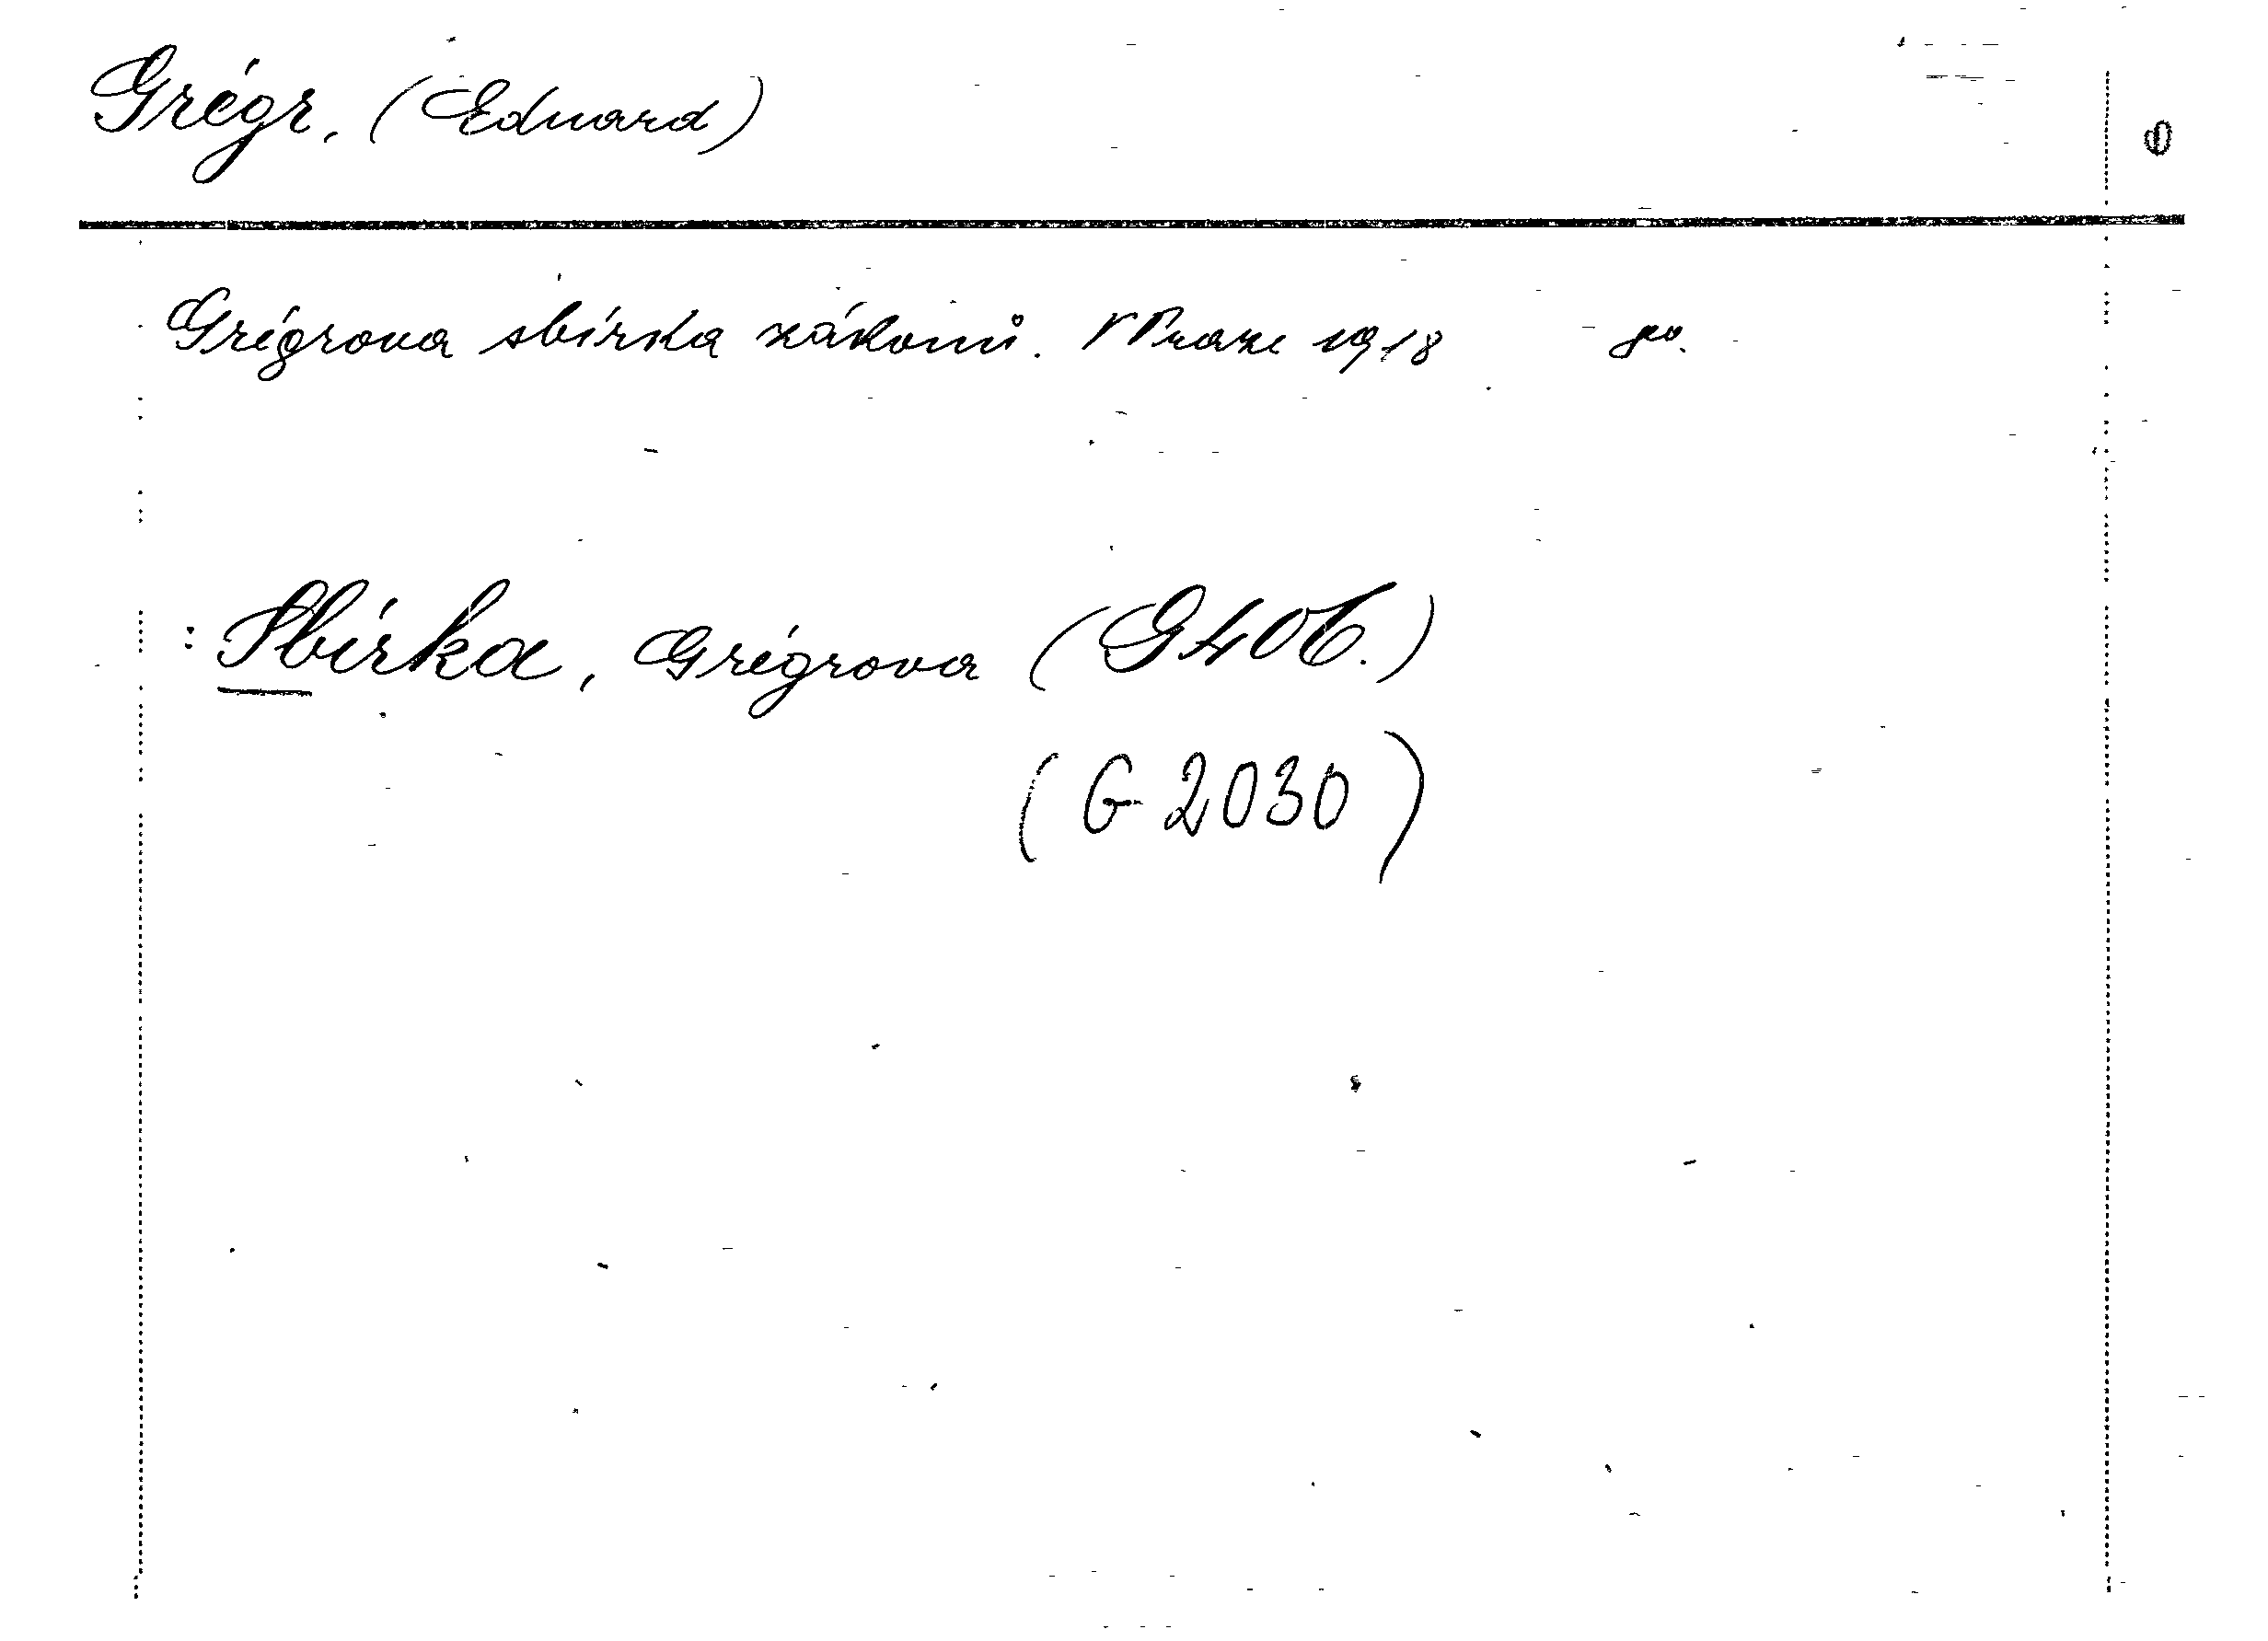 Grégr, (Eduard)
Grégrova sbírka zákonů. V Praze 1918
: Sbírka, Grégrova (G 406.)
(G 2030)